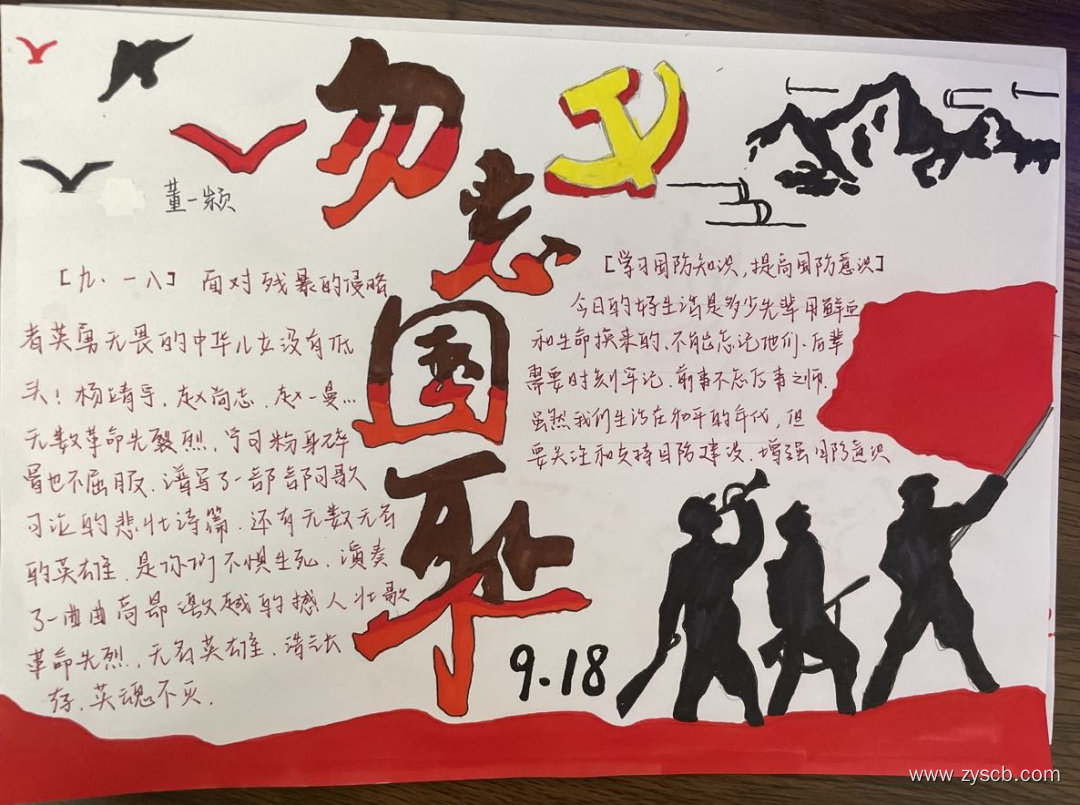 勿忘国耻
董一颖
[九·一八] 面对残暴的侵略
者英勇无畏的中华儿女没有低
头! 杨靖宇, 赵尚志, 赵一曼...
无数革命先裂烈, 宁可粉身碎
骨也不屈服. 谱写了一部部可歌
可泣的悲壮诗篇. 还有无数无名
的英雄. 是你们不惧生死. 演奏
了一曲曲高昂激越的撼人壮歌
革命先烈. 无名英雄. 浩气长
存. 英魂不灭.
[学习国防知识, 提高国防意识]
今日的好生活是多少先辈用鲜血
和生命换来的. 不能忘记他们. 后辈
需要时刻牢记. 前事不忘后事之师.
虽然我们生活在和平的年代, 但
要关注和支持国防建设. 增强国防意识
9.18
www.zyscb.com